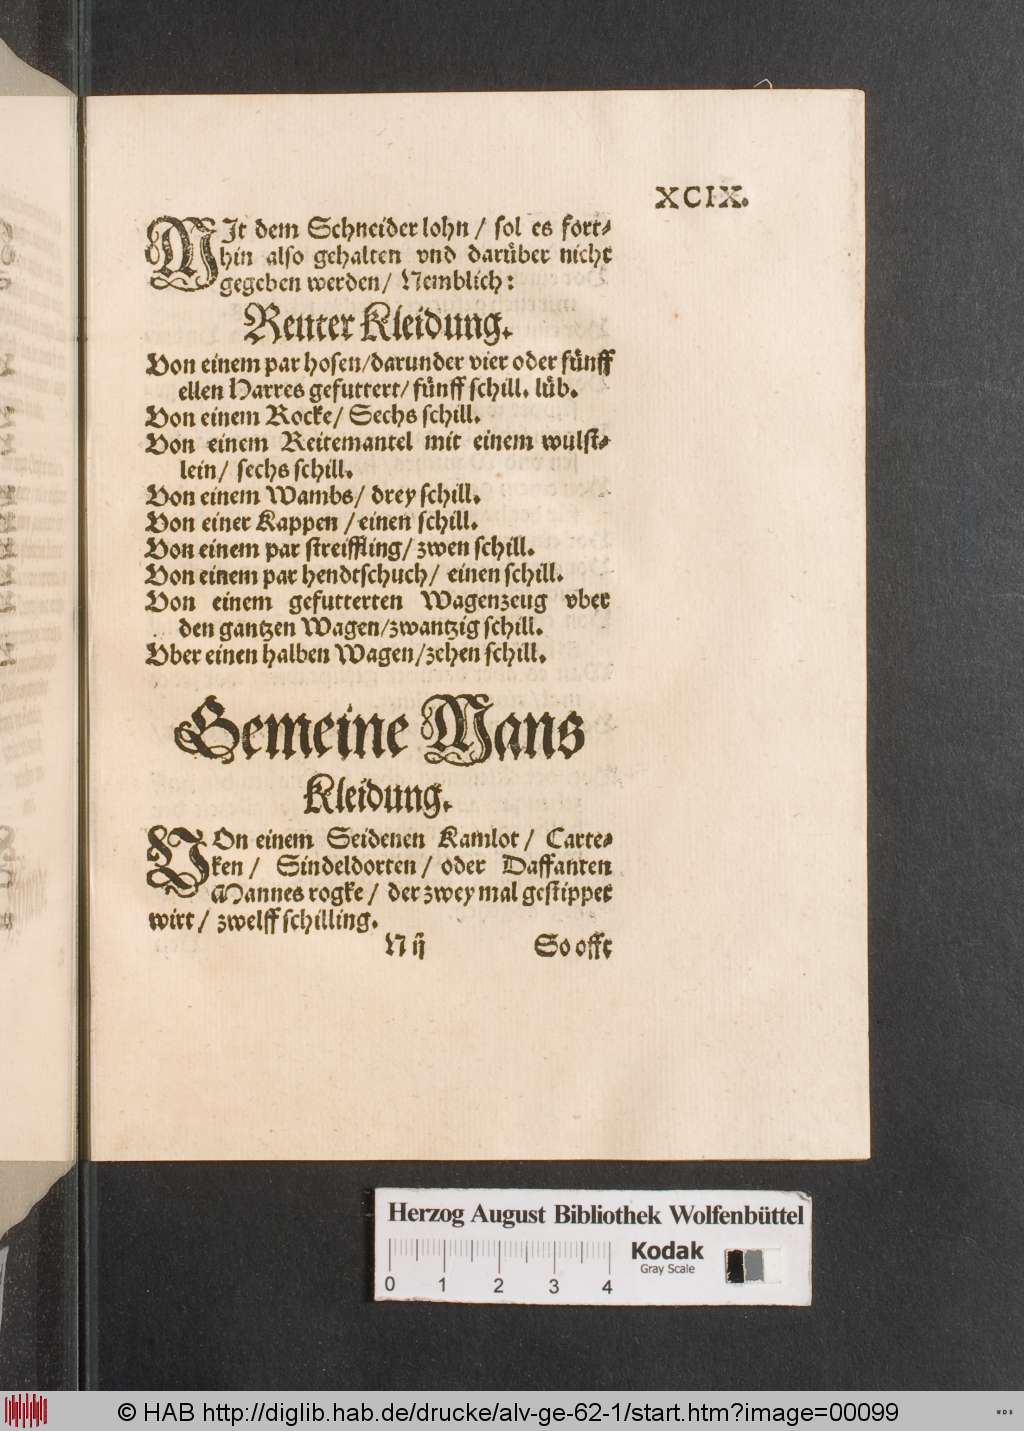 XCIX.
MIt dem Schneider lohn / sol es fort⸗
hin also gehalten vnd darüber nicht
gegeben werden / Nemblich:
Reuter Kleidung.
Von einem par hosen/darunder vier oder fünff
ellen Harres gefuttert/ fünff schill. lüb.
Von einem Rocke/ Sechs schill.
Von einem Reitemantel mit einem wulst⸗
lein/ sechs schill.
Von einem Wambs/ drey schill.
Von einer Kappen / einen schill.
Von einem par streiffling/ zwen schill.
Von einem par hendtschuch/ einen schill.
Von einem gefutterten Wagenzeug vber
den gantzen Wagen/zwantzig schill.
Vber einen halben Wagen/zehen schill.
Gemeine Mans
Kleidung.
VOn einem Seidenen Kamlot / Carte⸗
ken / Sindeldorten / oder Daffanten
Mannes rogke / der zwey mal gestippet
wirt / zwelff schilling.
N ij So offt
Herzog August Bibliothek Wolfenbüttel
0 1 2 3 4
Kodak
Gray Scale
© HAB http://diglib.hab.de/drucke/alv-ge-62-1/start.htm?image=00099